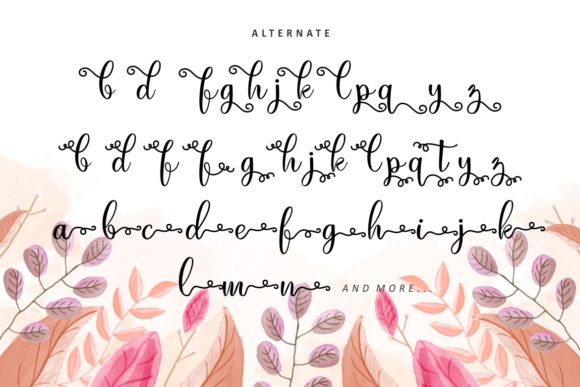 ALTERNATE
b d f g h j k l p q y z
b d f f g h j k l p q t y z
a b c d e f g h i j k
l m n AND MORE...